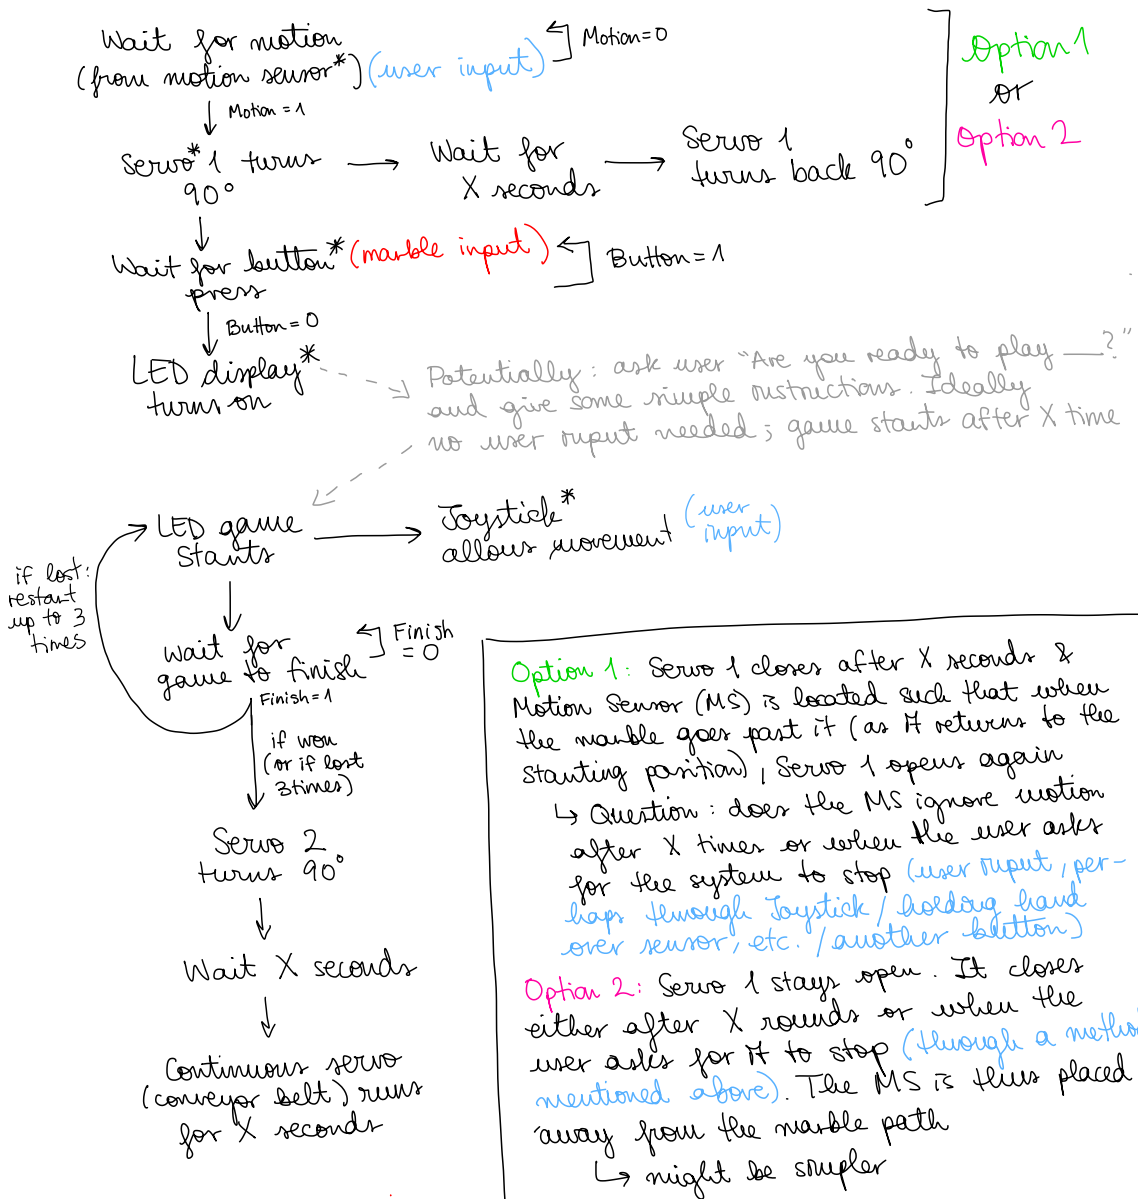 Wait for motion
(from motion sensor*) (user input)
Motion=0
Motion = 1
Option 1
or
Option 2
Servo* 1 turns
90°
Wait for
X seconds
Servo 1
turns back 90°
Wait for button* (marble input)
press
Button = 1
Button = 0
LED display*
turns on
Potentially: ask user "Are you ready to play __?"
and give some simple instructions. Ideally
no user input needed; game starts after X time
LED game
starts
Joystick*
allows movement
(user
input)
if lost:
restart
up to 3
times
wait for
game to finish
Finish
= 0
Finish=1
if won
(or if lost
3 times)
Servo 2
turns 90°
Wait X seconds
Continuous servo
(conveyor belt) runs
for X seconds
Option 1: Servo 1 closes after X seconds &
Motion Sensor (MS) is located such that when
the marble goes past it (as it returns to the
starting position), Servo 1 opens again
↳ Question: does the MS ignore motion
after X times or when the user asks
for the system to stop (user input, per-
haps through Joystick/holding hand
over sensor, etc. /another button)
Option 2: Servo 1 stays open. It closes
either after X rounds or when the
user asks for it to stop (through a metho
mentioned above). The MS is thus placed
away from the marble path
↳ might be simpler